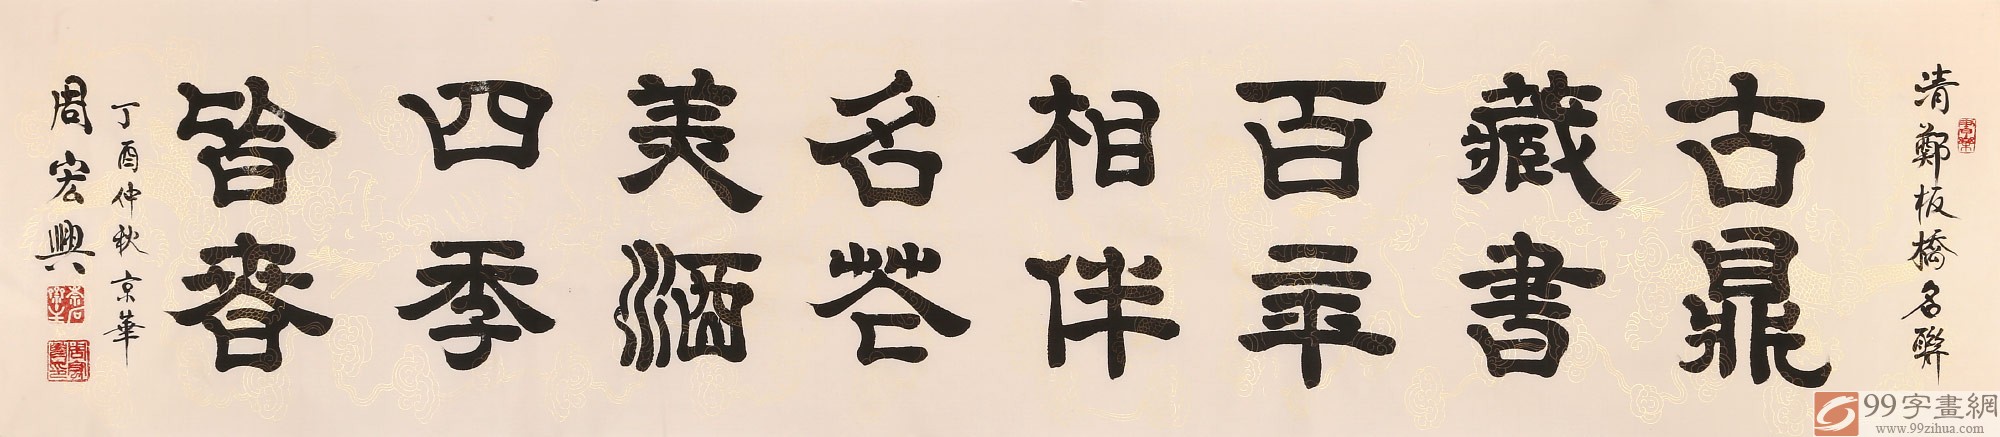 清鄭板橋名聯
古鼎
藏書
百年
相伴
名花
美酒
四季
皆春
丁酉仲秋京華
周宏興
99字畫網
www.99zihua.com